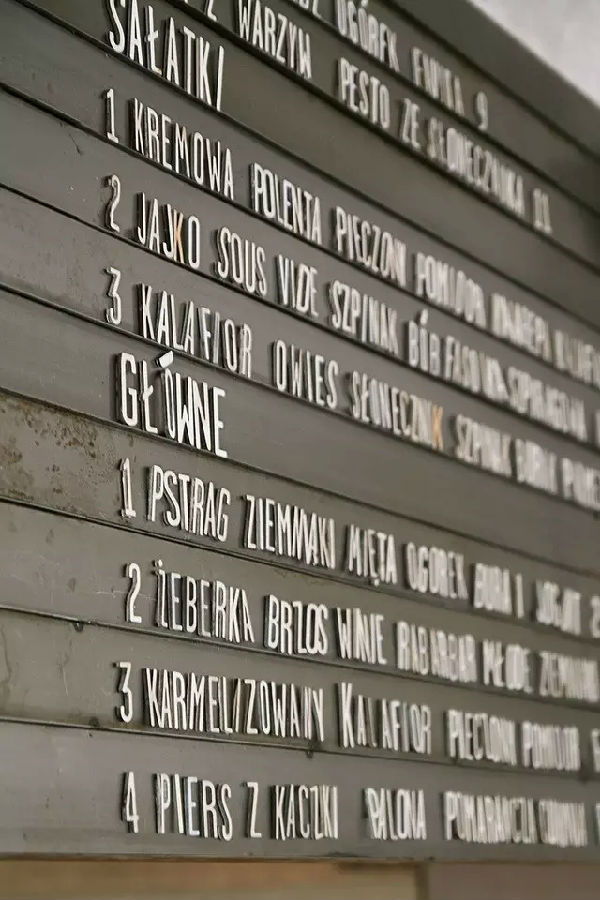 Z WARZYW PESTO ZE SŁONECZNIKA 11
OGÓREK 9
SAŁATKI
1 KREMOWA POLENTA PIECZONY POMIDOR
2 JAJKO SOUS VIDE SZPINAK BÓB FASOLKA SZPARAGOWA
3 KALAFIOR OWIES SŁONECZNIK SZPINAK BURAK
GŁÓWNE
1 PSTRĄG ZIEMNIAKI MIĘTA OGÓREK BURAK JOGURT 2
2 ŻEBERKA BRZOS WINIE RABARBAR MŁODE ZIEMNIAKI
3 KARMELIZOWANY KALAFIOR PIECZONY POMIDOR
4 PIERŚ Z KACZKI PALONA POMARAŃCZA